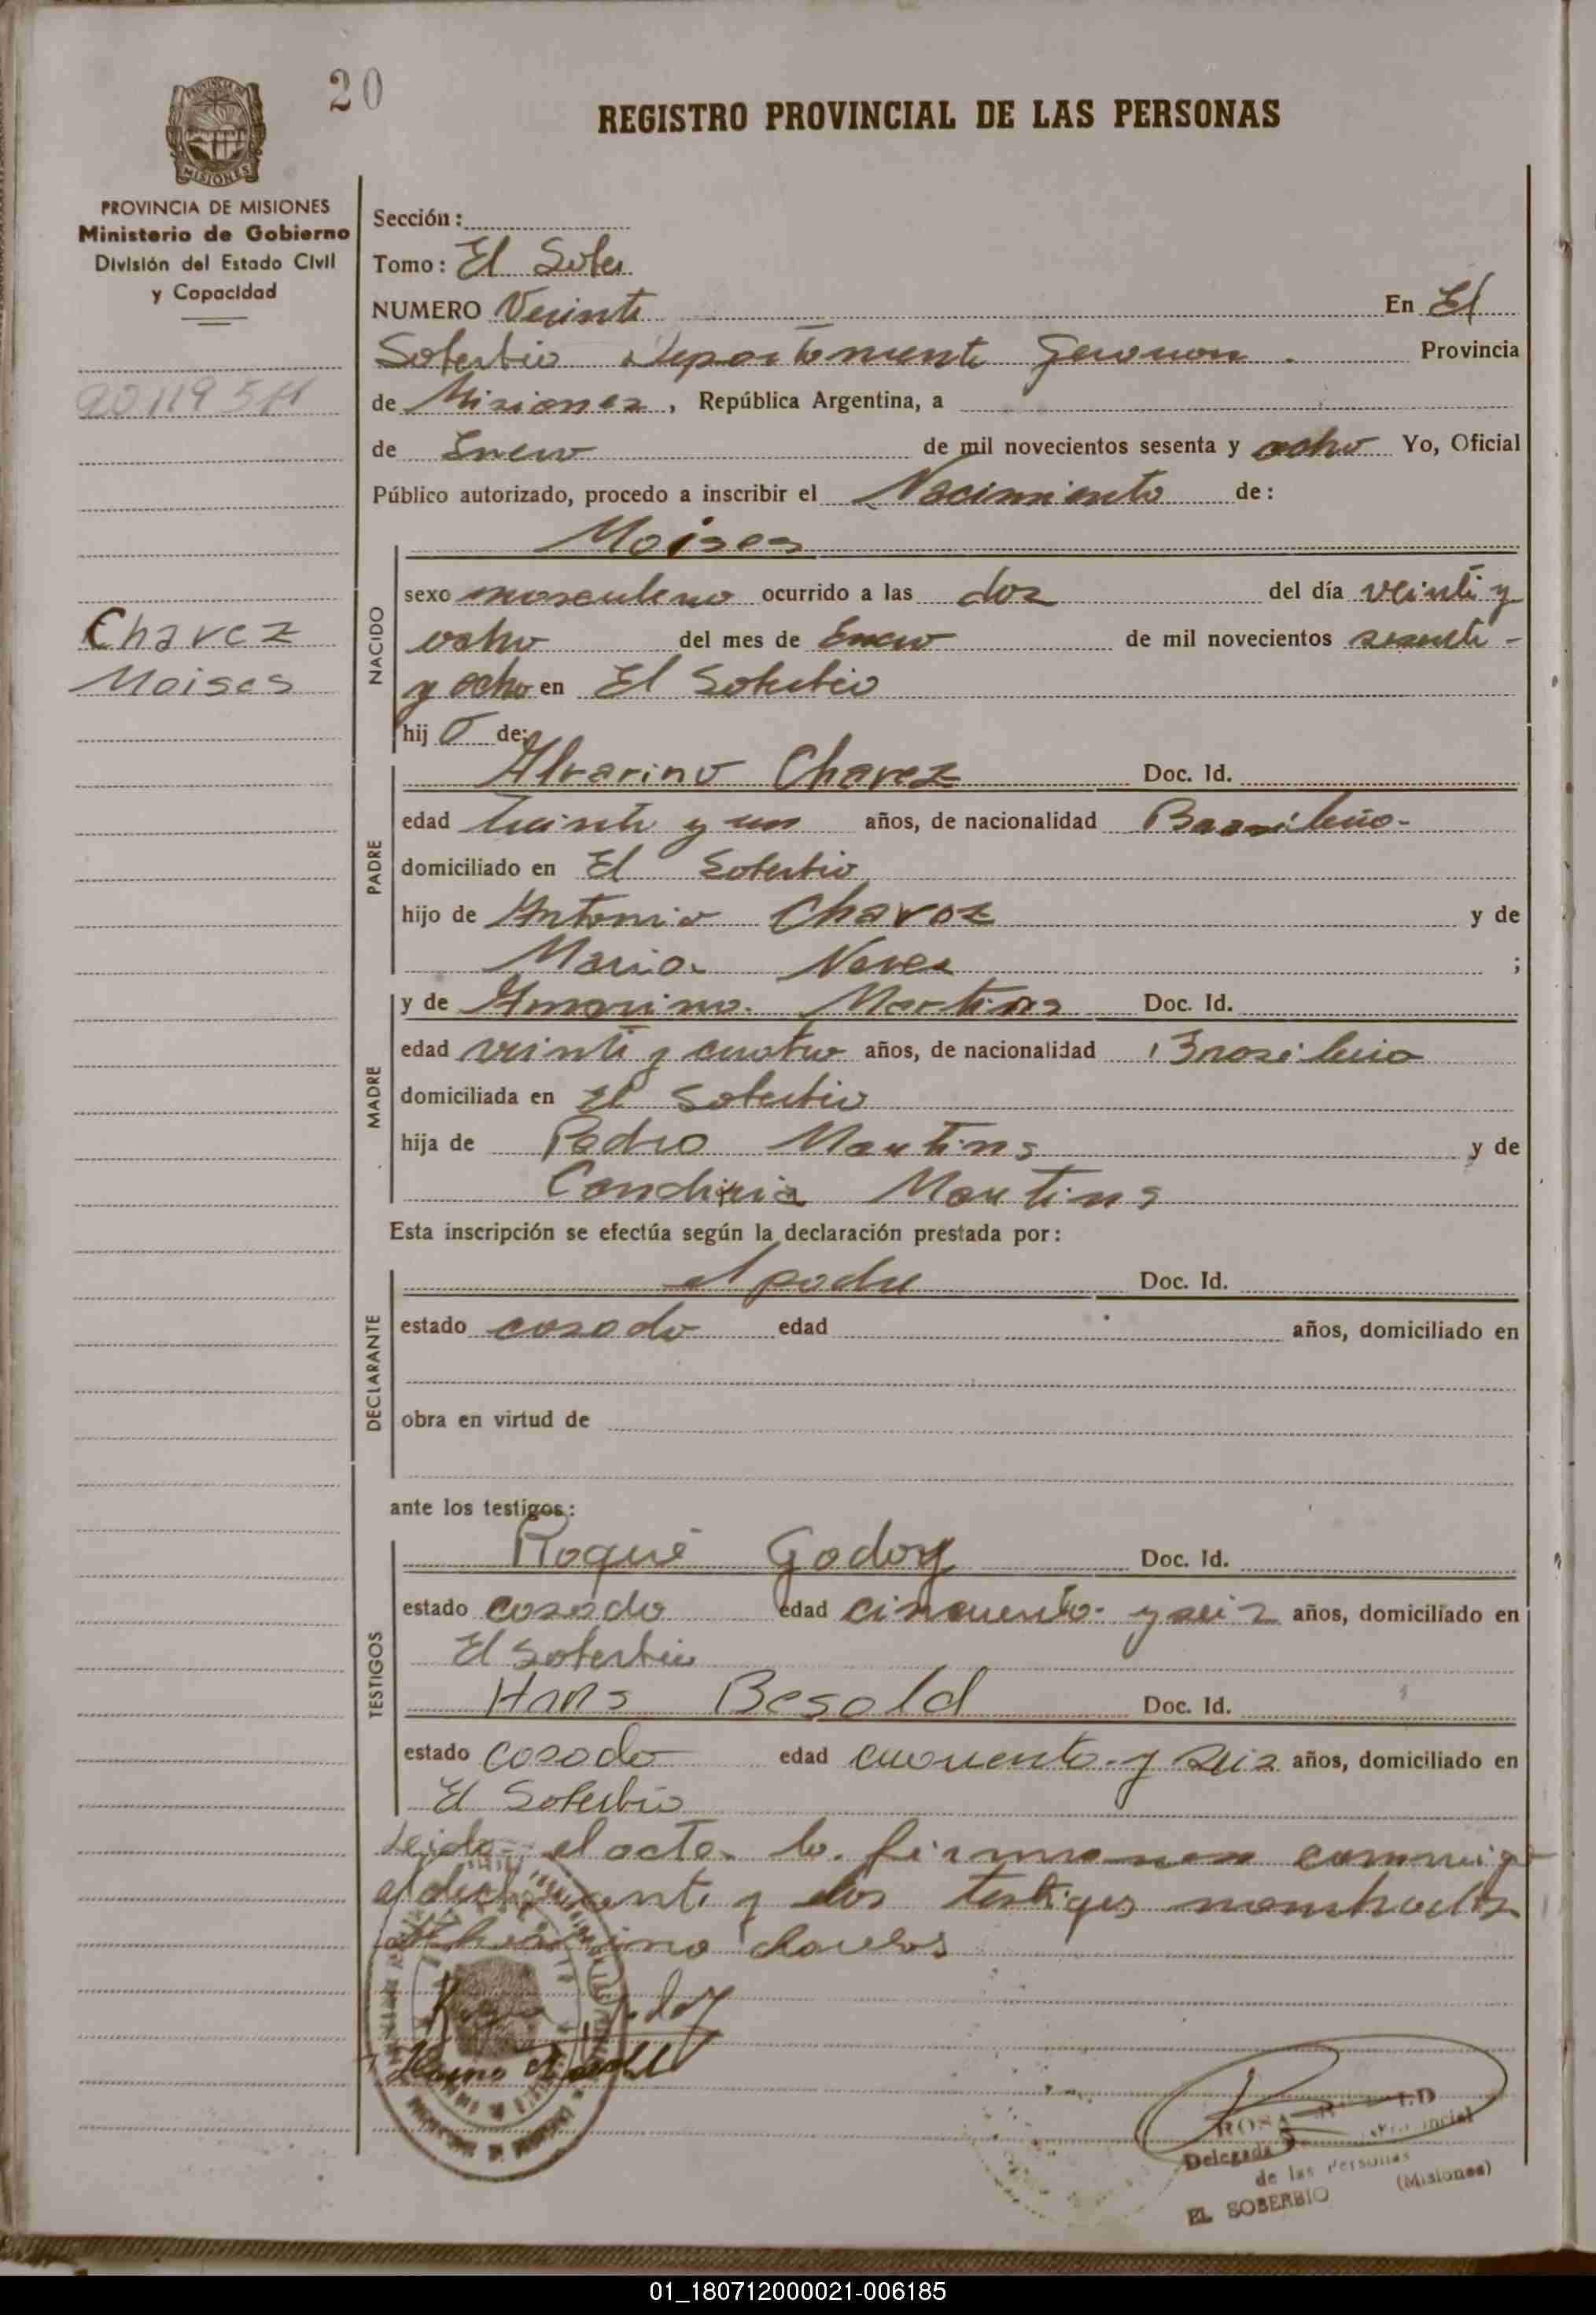 20
REGISTRO PROVINCIAL DE LAS PERSONAS
PROVINCIA DE MISIONES
MISIONES
PROVINCIA DE MISIONES
Ministerio de Gobierno
División del Estado Civil
y Capacidad
Chavez
Moises
Sección:
Tomo: El Sober
NUMERO Veinte En El
Soberbio Departamento Guarani Provincia
de Misiones, República Argentina, a
de Enero de mil novecientos sesenta y ocho Yo, Oficial
Público autorizado, procedo a inscribir el Nacimiento de:
Moises
NACIDO
sexo masculino ocurrido a las dos del día veinti y
ocho del mes de Enero de mil novecientos sesenta -
y ocho en El Soberbio
hijo de:
PADRE
Alvarino Chavez Doc. Id.
edad treinta y un años, de nacionalidad Brasileño.
domiciliado en El Soberbio
hijo de Antonio Chavez y de
Maria Neves ;
MADRE
y de Amarina Martins Doc. Id.
edad veinti y cuatro años, de nacionalidad Brasileña
domiciliada en El Soberbio
hija de Pedro Martins y de
Martins
Esta inscripción se efectúa según la declaración prestada por:
DECLARANTE
el padre Doc. Id.
estado casado edad años, domiciliado en
obra en virtud de
ante los testigos:
TESTIGOS
Roque Godoy Doc. Id.
estado casado edad cincuenta y seis años, domiciliado en
El Soberbio
Hans Besold Doc. Id.
estado casado edad cuarenta y seis años, domiciliado en
El Soberbio
Leida el acta la firman conmigo
el declarante y los testigos nombrados
Delegada Provincial
de las Personas
EL SOBERBIO (Misiones)
01_180712000021-006185